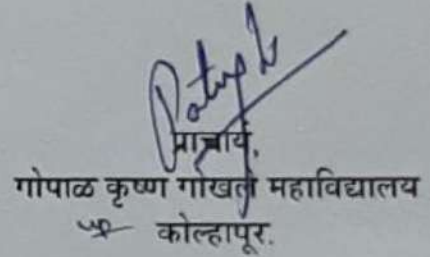 प्राचार्य,
गोपाळ कृष्ण गोखले महाविद्यालय
कोल्हापूर.